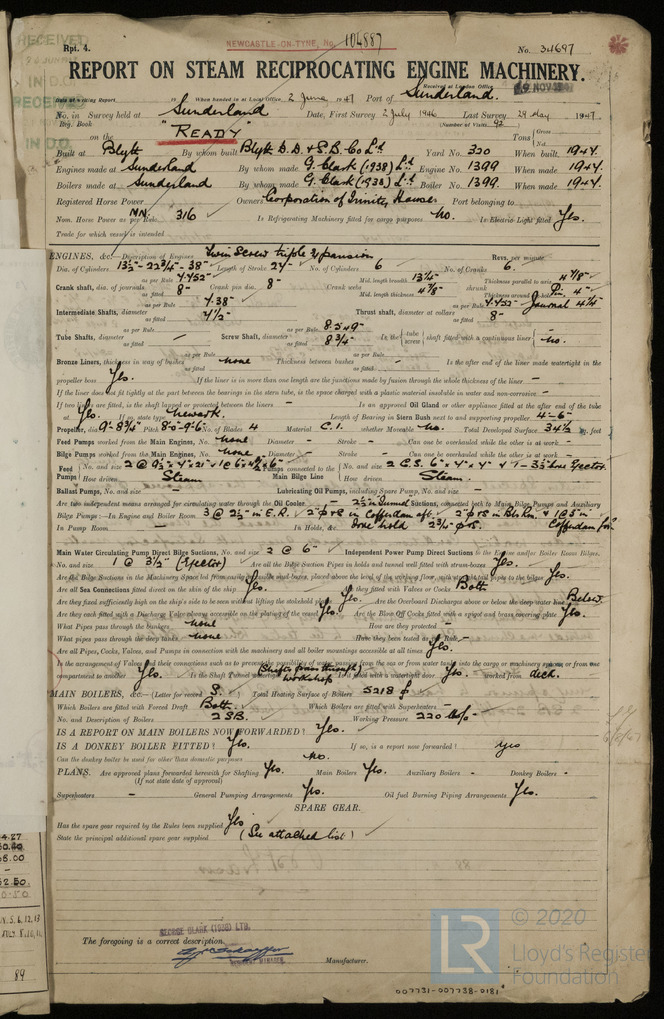 RECEIVED
IN D.O.
RECEIVED
IN D.O.
NEWCASTLE-ON-TYNE, No. 104887
Rpt. 4. No. 34697
REPORT ON STEAM RECIPROCATING ENGINE MACHINERY.
Received at London Office 19 NOV 1947
Date of writing Report 19 When handed in at Local Office 2 June 1947 Port of Sunderland.
No. in Survey held at Sunderland Date, First Survey 2 July 1946 Last Survey 29 May 1947
Reg. Book (Number of Visits 92)
on the "READY" Tons Gross Net
Built at Blyth By whom built Blyth D.D. & S.B. Co Ltd Yard No. 320 When built 1947.
Engines made at Sunderland By whom made G. Clark (1938) Ltd Engine No. 1399 When made 1947.
Boilers made at Sunderland By whom made G. Clark (1938) Ltd Boiler No. 1399. When made 1947.
Registered Horse Power Owners Corporation of Trinity House Port belonging to
Nom. Horse Power as per Rule MN. 316 Is Refrigerating Machinery fitted for cargo purposes No. Is Electric Light fitted Yes.
Trade for which vessel is intended
ENGINES, &c.—Description of Engines Twin Screw triple expansion Revs. per minute
Dia. of Cylinders 13½"-22¾"-38" Length of Stroke 24" No. of Cylinders 6 No. of Cranks 6.
Crank shaft, dia. of journals as per Rule 7.752" as fitted 8" Crank pin dia. 8" Crank webs Mid. length breadth 13¼" Mid. length thickness 4⅞" shrunk Thickness parallel to axis 4⅞" Thickness around Pin, 4" Journal 4¼"
Intermediate Shafts, diameter as per Rule 7.38" as fitted 7½" Thrust shaft, diameter at collars as per Rule 7.752 as fitted 8"
Tube Shafts, diameter as per Rule as fitted - Screw Shaft, diameter as per Rule 8.549" as fitted 8¾" Is the tube screw shaft fitted with a continuous liner No.
Bronze Liners, thickness in way of bushes as per Rule as fitted None Thickness between bushes as per Rule as fitted - Is the after end of the liner made watertight in the
propeller boss Yes. If the liner is in more than one length are the junctions made by fusion through the whole thickness of the liner -
If the liner does not fit tightly at the part between the bearings in the stern tube, is the space charged with a plastic material insoluble in water and non-corrosive -
If two liners are fitted, is the shaft lapped or protected between the liners - Is an approved Oil Gland or other appliance fitted at the after end of the tube
Yes. If so, state type Newark. Length of Bearing in Stern Bush next to and supporting propeller 4'-6"
Propeller, dia 9'-8¾" Pitch No. of Blades 4 Material C.I. whether Moveable No. Total Developed Surface 34½ sq. feet
Feed Pumps worked from the Main Engines, No. None Diameter - Stroke - Can one be overhauled while the other is at work -
Bilge Pumps worked from the Main Engines, No. None Diameter - Stroke - Can one be overhauled while the other is at work -
Feed Pumps No. and size How driven Steam Pumps connected to the Main Bilge Line No. and size How driven Steam.
Ballast Pumps, No. and size - Lubricating Oil Pumps, including Spare Pump, No. and size -
Are two independent means arranged for circulating water through the Oil Cooler - Suctions, connected both to Main Bilge Pumps and Auxiliary
Bilge Pumps:—In Engine and Boiler Room 3 @ 2½" in E.R.
In Pump Room - In Holds, &c.
Main Water Circulating Pump Direct Bilge Suctions, No. and size 2 @ 6" Independent Power Pump Direct Suctions to the Engine and/or Boiler Room Bilges,
No. and size 1 @ 3½" (Ejector) Are all the Bilge Suction Pipes in holds and tunnel well fitted with strum-boxes Yes.
Are the Bilge Suctions in the Machinery Space led from easily accessible mud-boxes, placed above the level of the working floor, with straight tail pipes to the bilges Yes.
Are all Sea Connections fitted direct on the skin of the ship Yes. Are they fitted with Valves or Cocks Both.
Are they fixed sufficiently high on the ship's side to be seen without lifting the stokehold plates Yes. Are the Overboard Discharges above or below the deep water line Below.
Are they each fitted with a Discharge Valve always accessible on the plating of the vessel Yes. Are the Blow Off Cocks fitted with a spigot and brass covering plate Yes.
What Pipes pass through the bunkers None How are they protected -
What pipes pass through the deep tanks None Have they been tested as per Rule -
Are all Pipes, Cocks, Valves, and Pumps in connection with the machinery and all boiler mountings accessible at all times Yes.
Is the arrangement of Valves and their connections such as to prevent the possibility of water passing from the sea or from water tanks into the cargo or machinery spaces or from one
compartment to another Yes. Is the Shaft Tunnel watertight Shafts pass through workshop Is it fitted with a watertight door Yes. worked from deck.
MAIN BOILERS, &c.—(Letter for record S.) Total Heating Surface of Boilers 5218
Which Boilers are fitted with Forced Draft Both. Which Boilers are fitted with Superheaters -
No. and Description of Boilers 2 SB. Working Pressure 220 lbs/-
IS A REPORT ON MAIN BOILERS NOW FORWARDED? Yes.
IS A DONKEY BOILER FITTED? Yes. If so, is a report now forwarded? Yes
Can the donkey boiler be used for other than domestic purposes No.
PLANS. Are approved plans forwarded herewith for Shafting Yes. Main Boilers Yes. Auxiliary Boilers - Donkey Boilers -
(If not state date of approval)
Superheaters - General Pumping Arrangements Yes. Oil fuel Burning Piping Arrangements Yes.
SPARE GEAR.
Has the spare gear required by the Rules been supplied Yes
State the principal additional spare gear supplied (See attached list)
GEORGE CLARK (1938) LTD.
The foregoing is a correct description,
Manufacturer.
89
LR
© 2020
Lloyd's Register
Foundation
007731-007738-0181